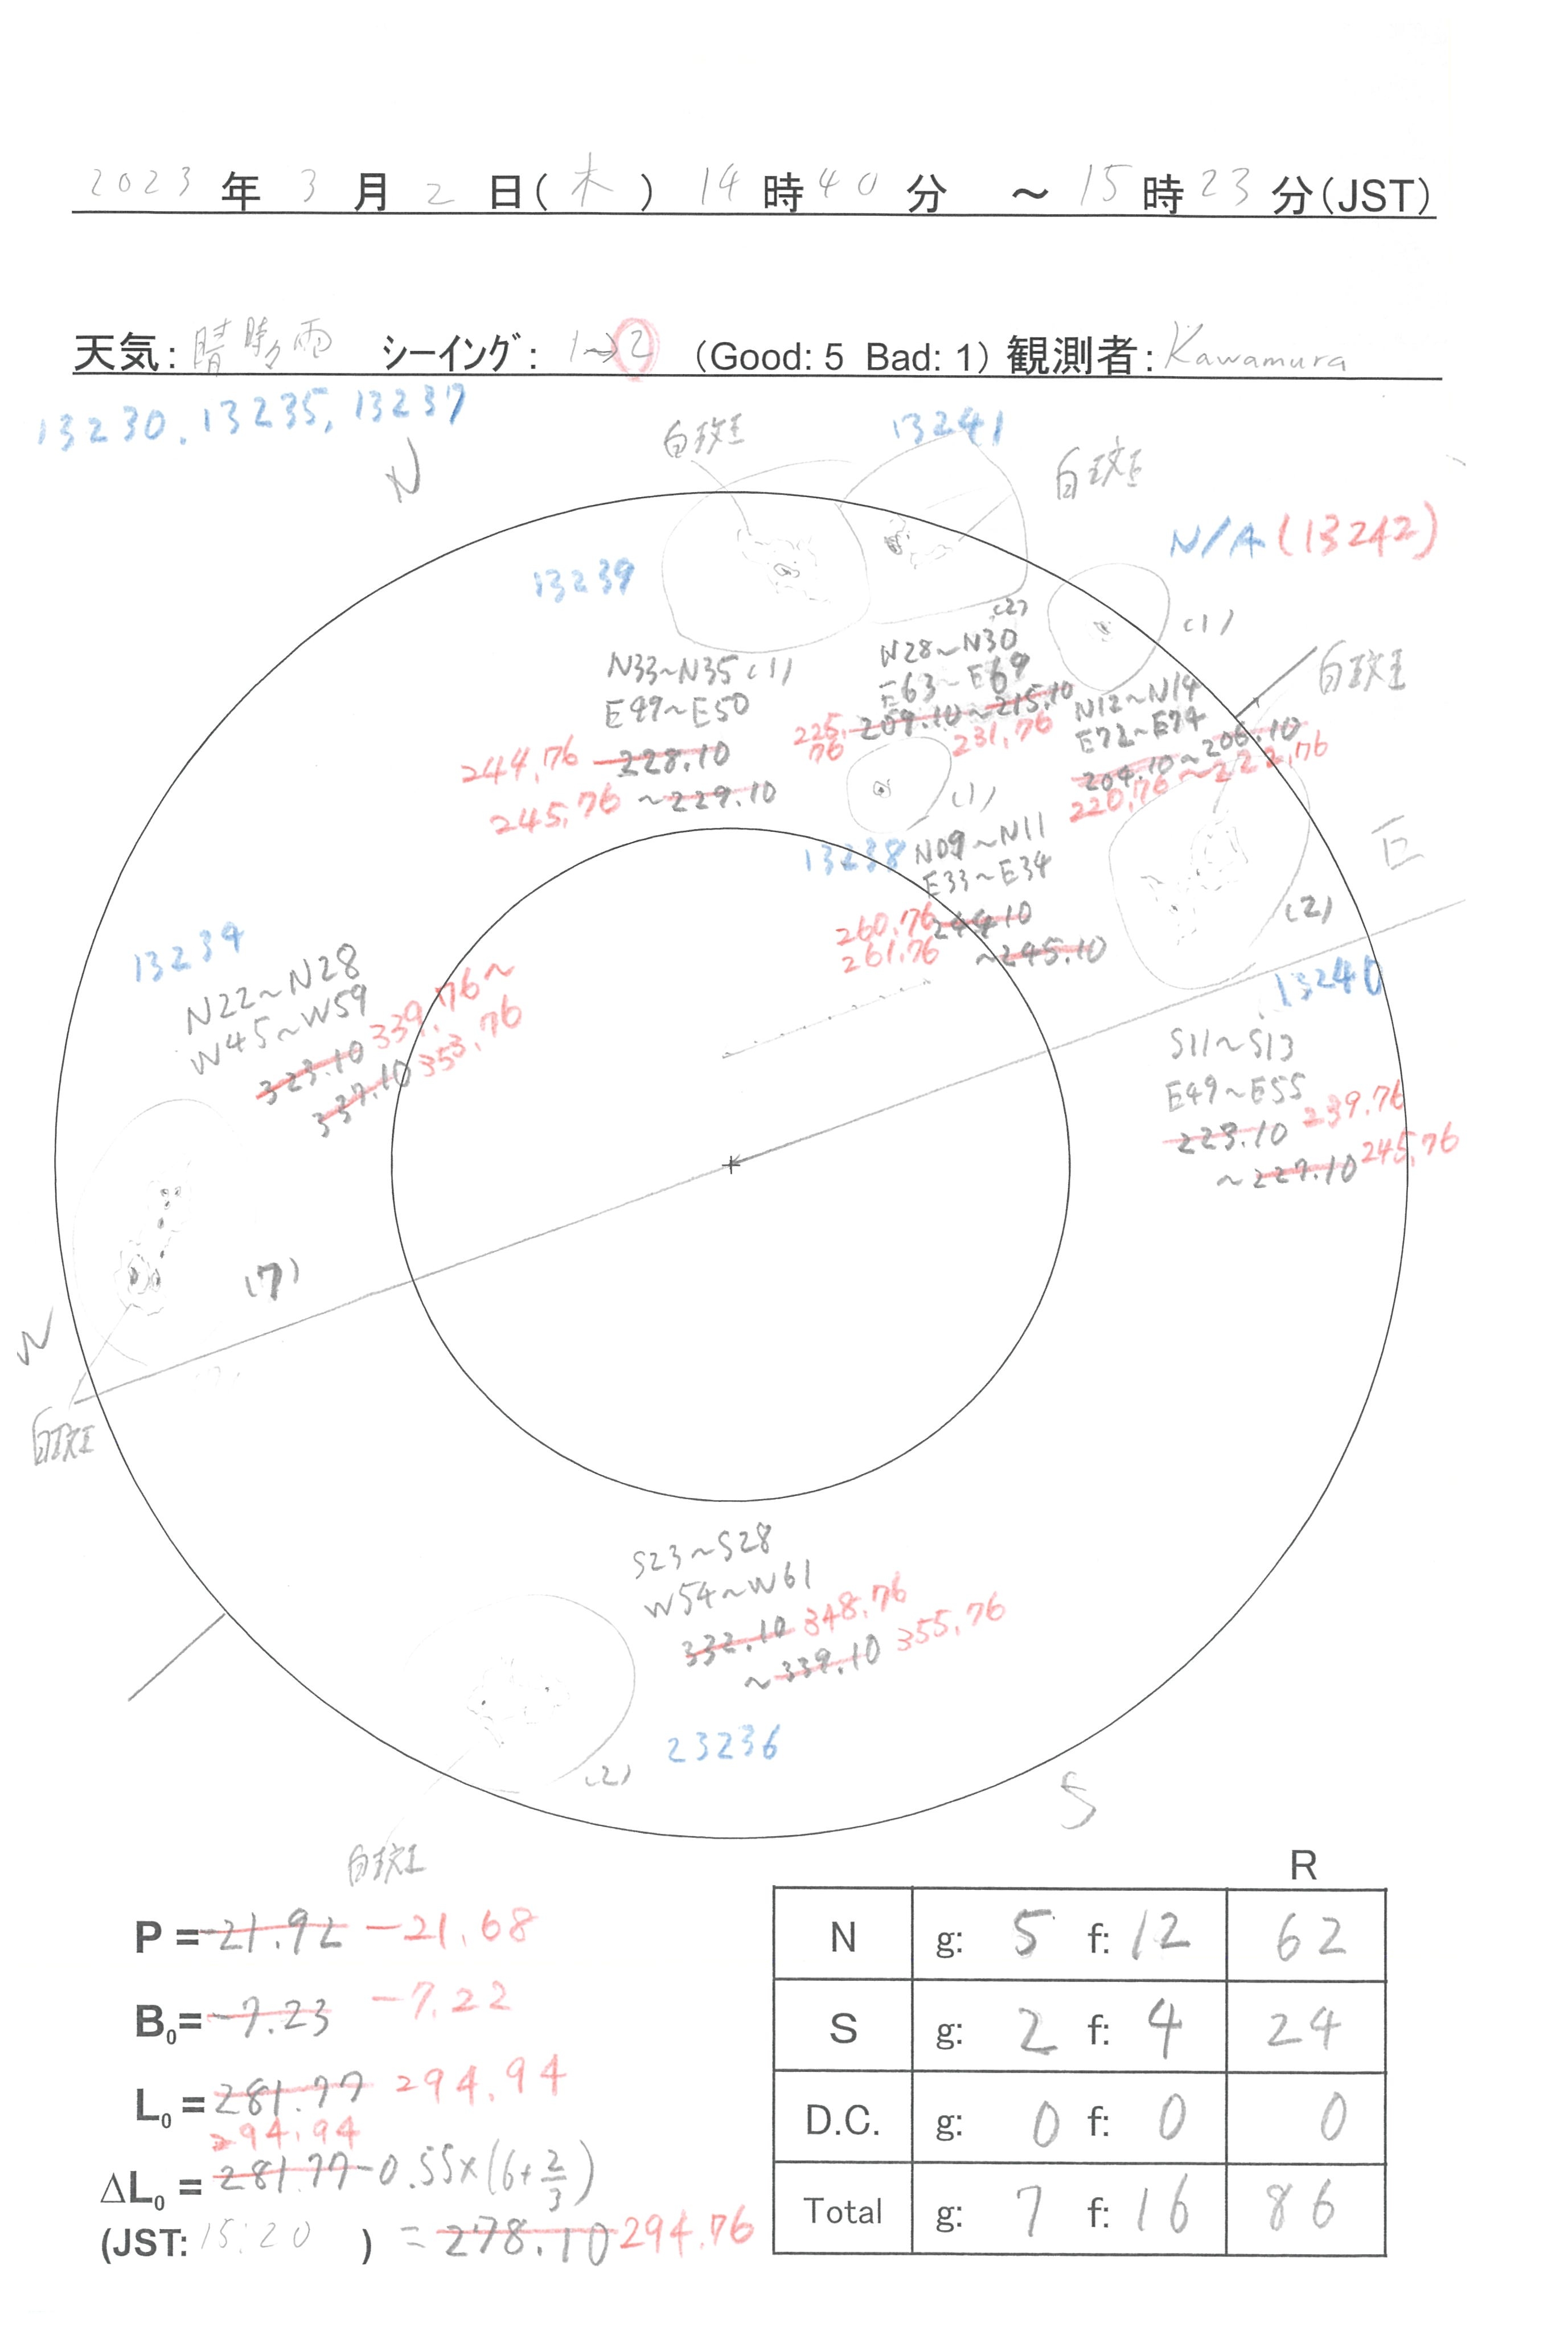 2023年3月2日(木)14時40分 ～15時23分(JST)
天気:晴時々雨 シーイング: 1→2 (Good: 5 Bad: 1) 観測者:Kawamura
13230.13235,13237
N
白斑
13241
白斑
N/A(13242)
13239
(2)
(1)
N33~N35(1)
E49~E50
244,76 228.10
245,76 ~229.10
N28~N30
E63~E69
225,76 209.10~215.10
231,76
N12~N14
E72~E74
204.10~206.10
220,76~222,76
白斑
(1)
13238
N09~N11
E33~E34
260,76 244.10
261.76 ~245.10
E
(2)
13240
S11~S13
E49~E55
223.10 239.76
~227.10 245,76
13234
N22~N28
W45~W59
323.10 339,76~
337.10 353,76
(7)
W
白斑
S23~S28
W54~W61
332.10 348,76
~339.10 355,76
23236
(2)
S
白斑
P = -21.92 -21,68
B0= -7.23 -7.22
L0 = 281.77 294,94
294,94
ΔL0 = 281.77-0.55×(6+2/3)
(JST: 15:20 ) = 278.10 294.76
R
N g: 5 f: 12 62
S g: 2 f: 4 24
D.C. g: 0 f: 0 0
Total g: 7 f: 16 86